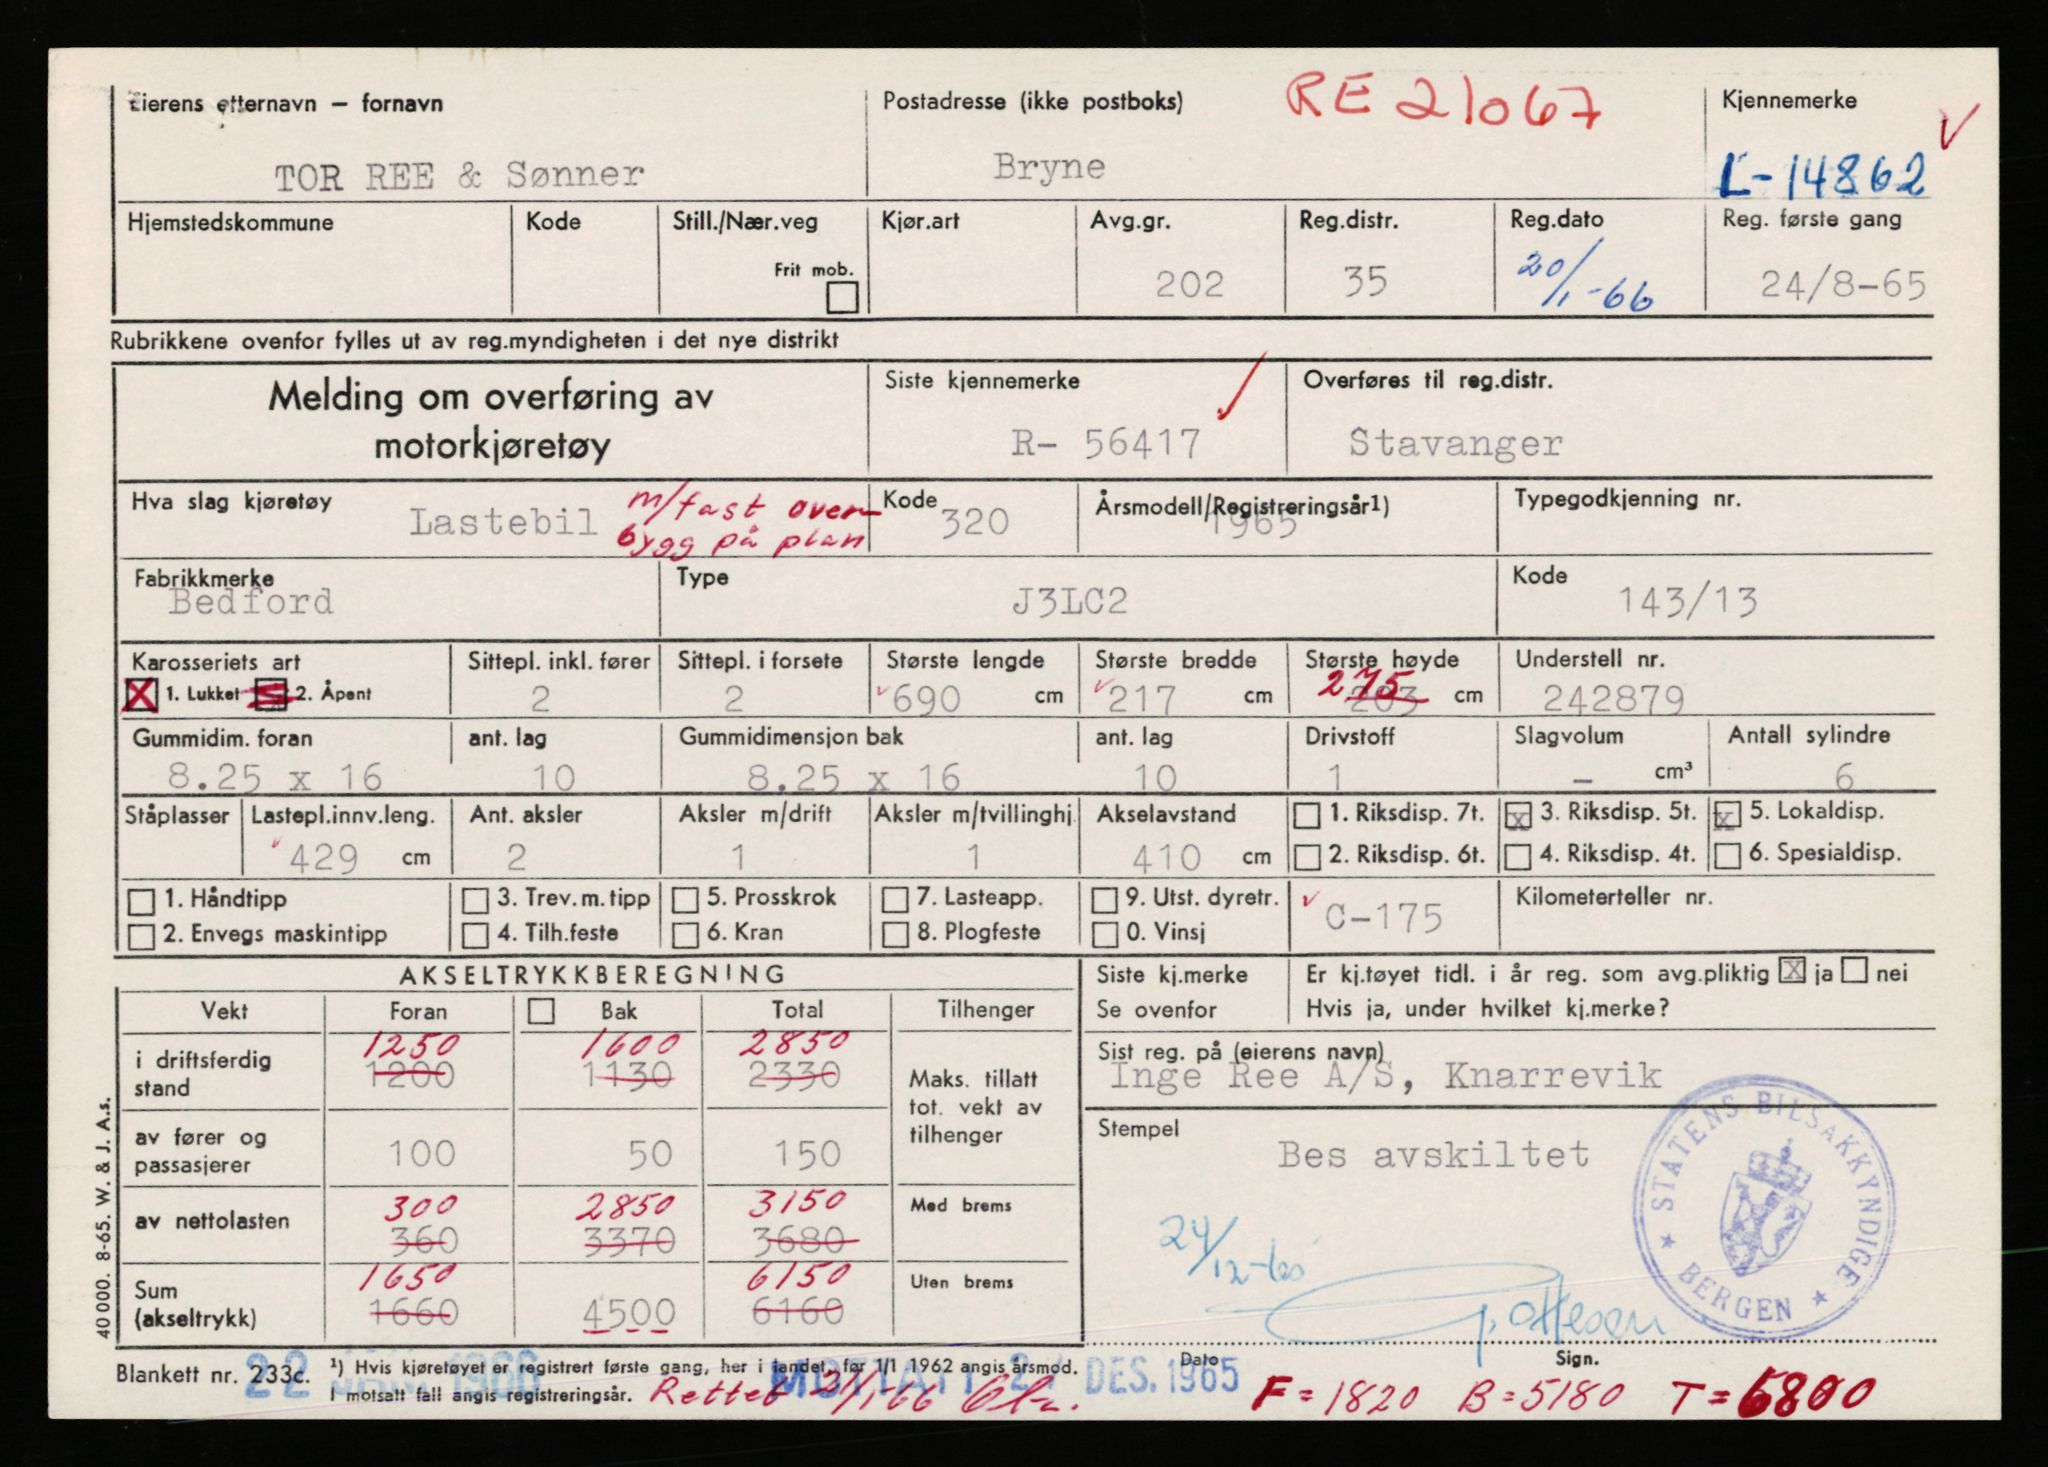 Eierens etternavn – fornavn
TOR REE & Sønner
Postadresse (ikke postboks)
Bryne
RE 21067
Kjennemerke
L-14862
Hjemstedskommune
Kode
Still./Nær.veg
Frit mob.
Kjør.art
Avg.gr.
202
Reg.distr.
35
Reg.dato
20/1-66
Reg. første gang
24/8-65
Rubrikkene ovenfor fylles ut av reg.myndigheten i det nye distrikt
Melding om overføring av
motorkjøretøy
Siste kjennemerke
R- 56417
Overføres til reg.distr.
Stavanger
Hva slag kjøretøy
Lastebil
m/fast over-
bygg på plan
Kode
320
Årsmodell/Registreringsår1)
1965
Typegodkjenning nr.
Fabrikkmerke
Bedford
Type
J3LC2
Kode
143/13
Karosseriets art
X 1. Lukket 2. Åpent
Sittepl. inkl. fører
2
Sittepl. i forsete
2
Største lengde
690 cm
Største bredde
217 cm
Største høyde
275
203 cm
Understell nr.
242879
Gummidim. foran
8.25 x 16
ant. lag
10
Gummidimensjon bak
8.25 x 16
ant. lag
10
Drivstoff
1
Slagvolum
– cm³
Antall sylindre
6
Ståplasser
Lastepl.innv.leng.
429 cm
Ant. aksler
2
Aksler m/drift
1
Aksler m/tvillinghj.
1
Akselavstand
410 cm
1. Riksdisp. 7t.
2. Riksdisp. 6t.
x 3. Riksdisp. 5t.
4. Riksdisp. 4t.
x 5. Lokaldisp.
6. Spesialdisp.
1. Håndtipp
2. Envegs maskintipp
3. Trev. m. tipp
4. Tilh.feste
5. Prosskrok
6. Kran
7. Lasteapp.
8. Plogfeste
9. Utst. dyretr.
0. Vinsj
C-175
Kilometerteller nr.
AKSELTRYKKBEREGNING
Vekt
Foran
Bak
Total
Tilhenger
i driftsferdig
stand
1250
1600
2850
1200
1130
2330
Maks. tillatt
tot. vekt av
tilhenger
av fører og
passasjerer
100
50
150
av nettolasten
300
2850
3150
360
3370
3680
Med brems
Sum
(akseltrykk)
1650
6150
1660
4500
6160
Uten brems
Siste kj.merke
Se ovenfor
Er kj.tøyet tidl. i år reg. som avg.pliktig x ja nei
Hvis ja, under hvilket kj.merke?
Sist reg. på (eierens navn)
Inge Ree A/S, Knarrevik
Stempel
Bes avskiltet
STATENS BILSAKKYNDIGE
BERGEN
24/12-65
J. Ottesen
Dato
Sign.
40 000. 8-65. W. & J. A.s.
Blankett nr. 233c.
1) Hvis kjøretøyet er registrert første gang, her i landet, før 1/1 1962 angis årsmod.
I motsatt fall angis registreringsår.
22 JAN. 1966
MOTTATT 2 DES. 1965
Rettet 21/1-66
F = 1820 B = 5180 T = 6800